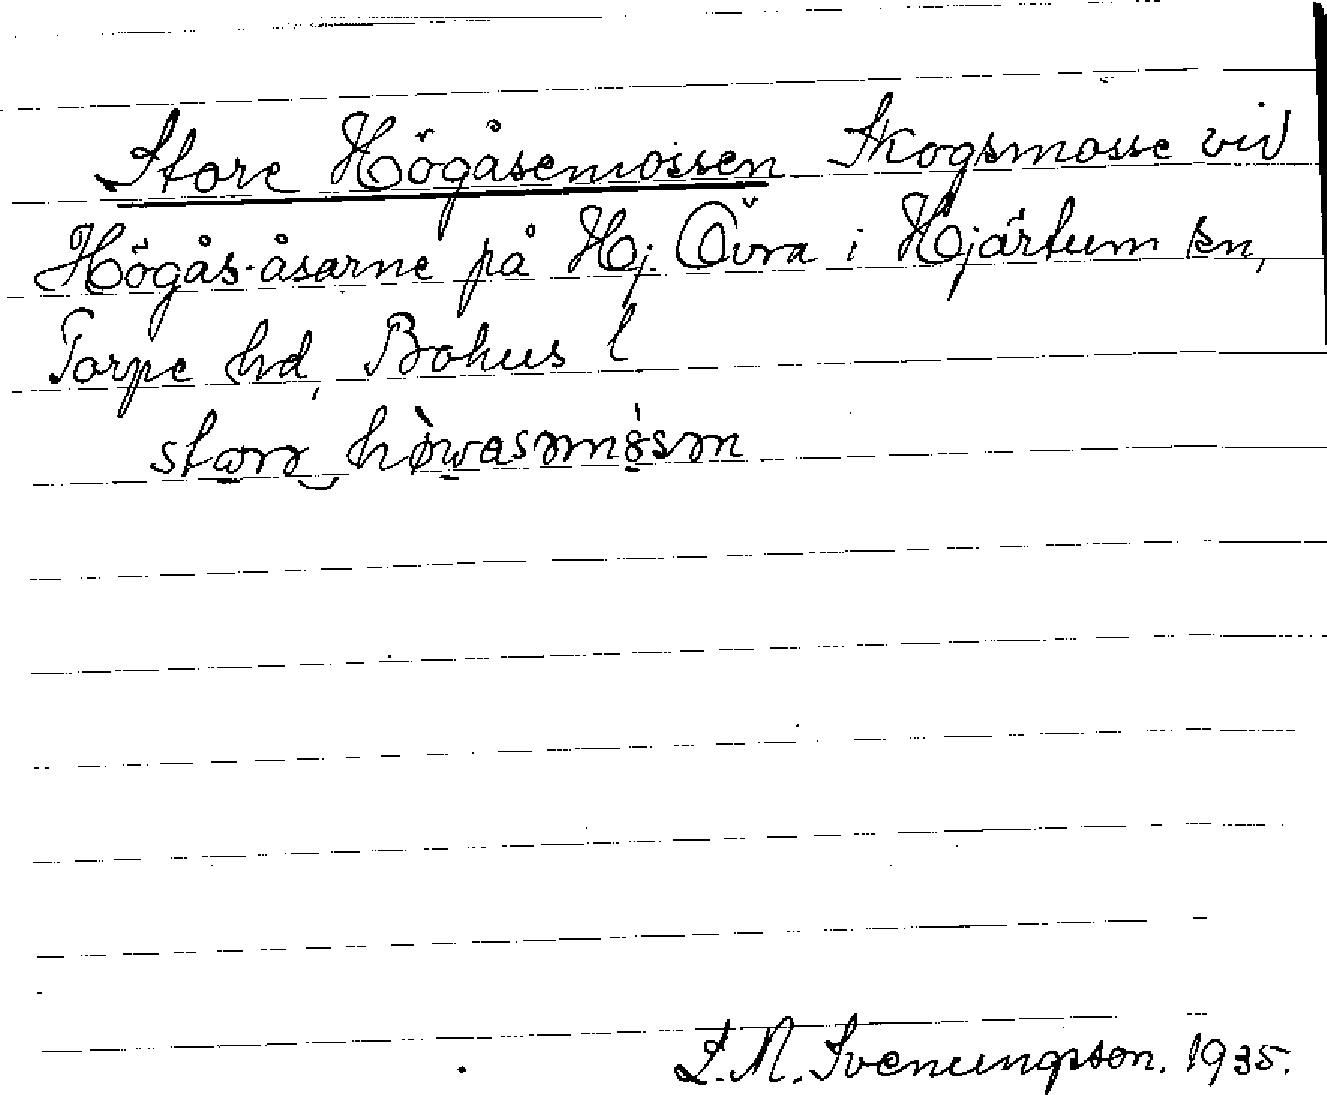 Store Högåsemossen Skogsmosse vid
Högås-åsarne på Hj. Övra i Hjärtum sn,
Torpe hd, Bohus l
L.N. Svenungsson. 1935.